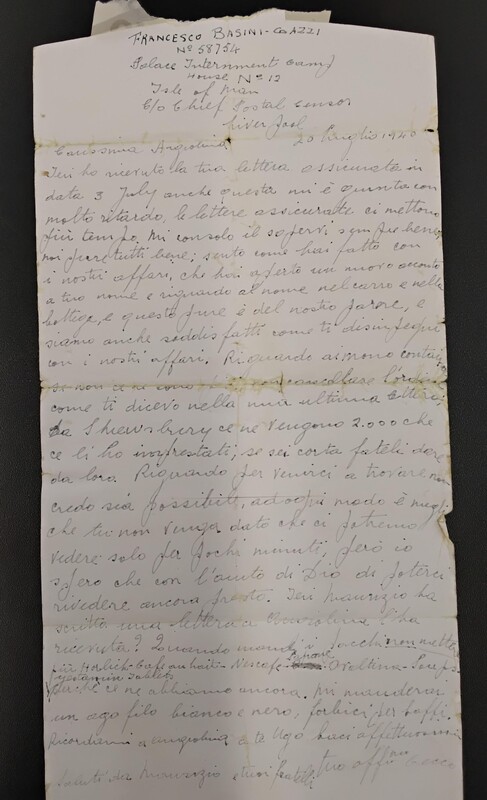 FRANCESCO BASINI-GAZZI
Nº 58754
Palace Internment Camp
House Nº 12
Isle of Man
C/o Chief Postal Censor
Liverpool
20 Luglio 1940
Carissima Angiolina
Ieri ho ricevuto la tua lettera assicurata in
data 3 July anche questa mi è giunta con
molto ritardo, le lettere assicurate ci mettono
più tempo. Mi consolo il sapervi sempre bene,
noi pure tutti bene; sento come hai fatto con
i nostri affari, che hai aperto un nuovo
a tuo nome e riguardo al nome nel carro e nella
bottega, e questo pure è del nostro parere, e
siamo anche soddisfatti come ti disimpegni
con i nostri affari. Riguardo ai mono
se non ce ne sono cancellare l'ordine
come ti dicevo nella mia ultima lettera,
da Shrewsbury ce ne vengono 2.000 che
ce li ho imprestati, se sei corta fateli dare
da loro. Riguardo per venirci a trovare non
credo sia possibile, ad ogni modo è meglio
che tu non venga dato che ci potremo
vedere solo per pochi minuti, però io
spero che con l'aiuto di Dio di poterci
rivedere ancora presto. Ieri Maurizio ha
scritto una lettera a l'ha
ricevuta? Quando mandi i pacchi non mettere
più Horlich Nescafe Ovaltina
Tablets
ce ne abbiamo ancora. Mi manderai
un ago filo bianco e nero, forbici per baffi.
Ricordami a e te Ugo baci affettuosi
Saluti da Maurizio e tuoi fratelli tuo affmo